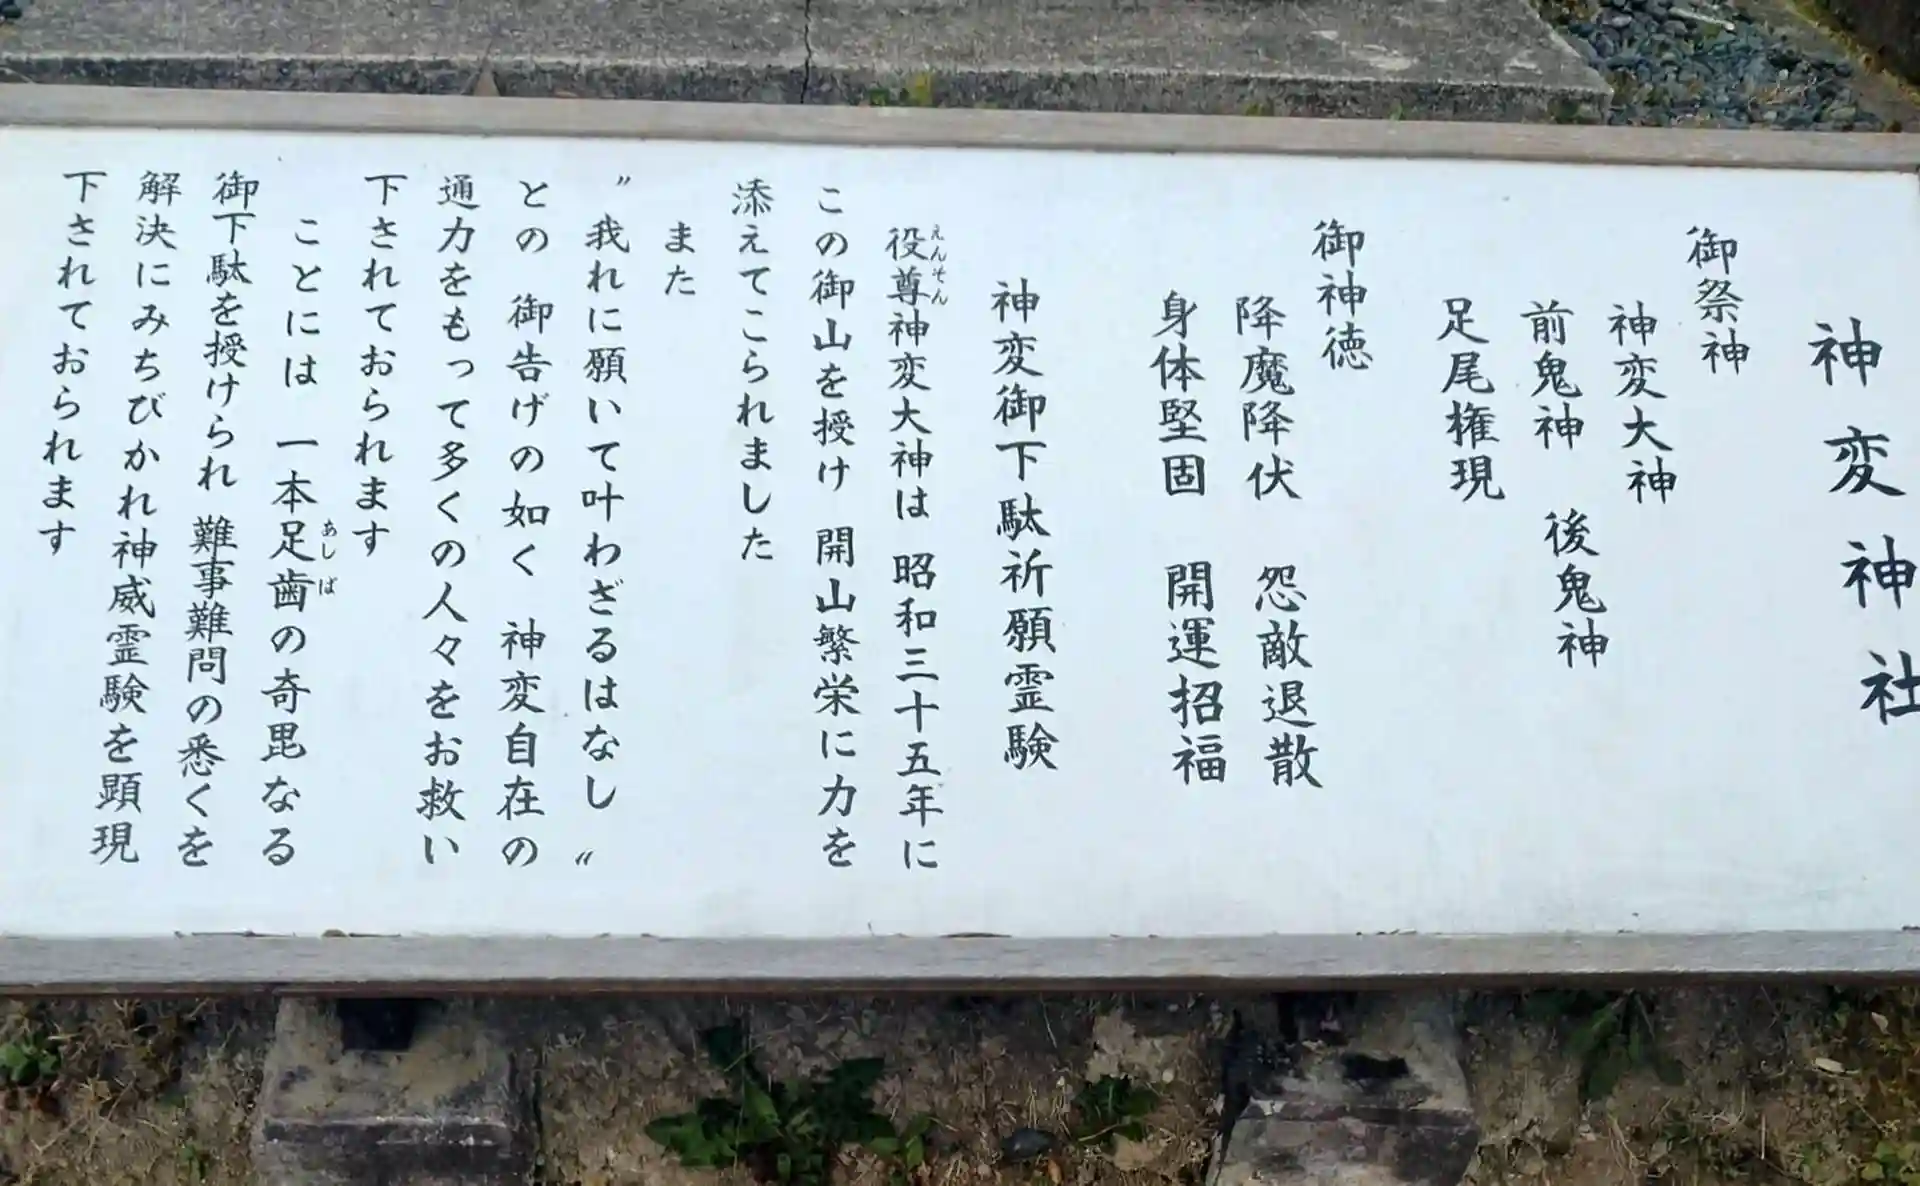 神変神社
御祭神
神変大神
前鬼神　後鬼神
足尾権現
御神徳
降魔降伏　怨敵退散
身体堅固　開運招福
神変御下駄祈願霊験
役尊神変大神は　昭和三十五年に
えんそん
この御山を授け　開山繁栄に力を
添えてこられました
また
〝我れに願いて叶わざるはなし〟
との　御告げの如く　神変自在の
通力をもって多くの人々をお救い
下されております
ことには　一本足歯の奇毘なる
あしば
御下駄を授けられ　難事難問の悉くを
解決にみちびかれ神威霊験を顕現
下されておられます